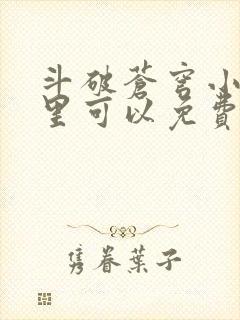 斗破蒼穹小
里可以免費
隽眷葉子